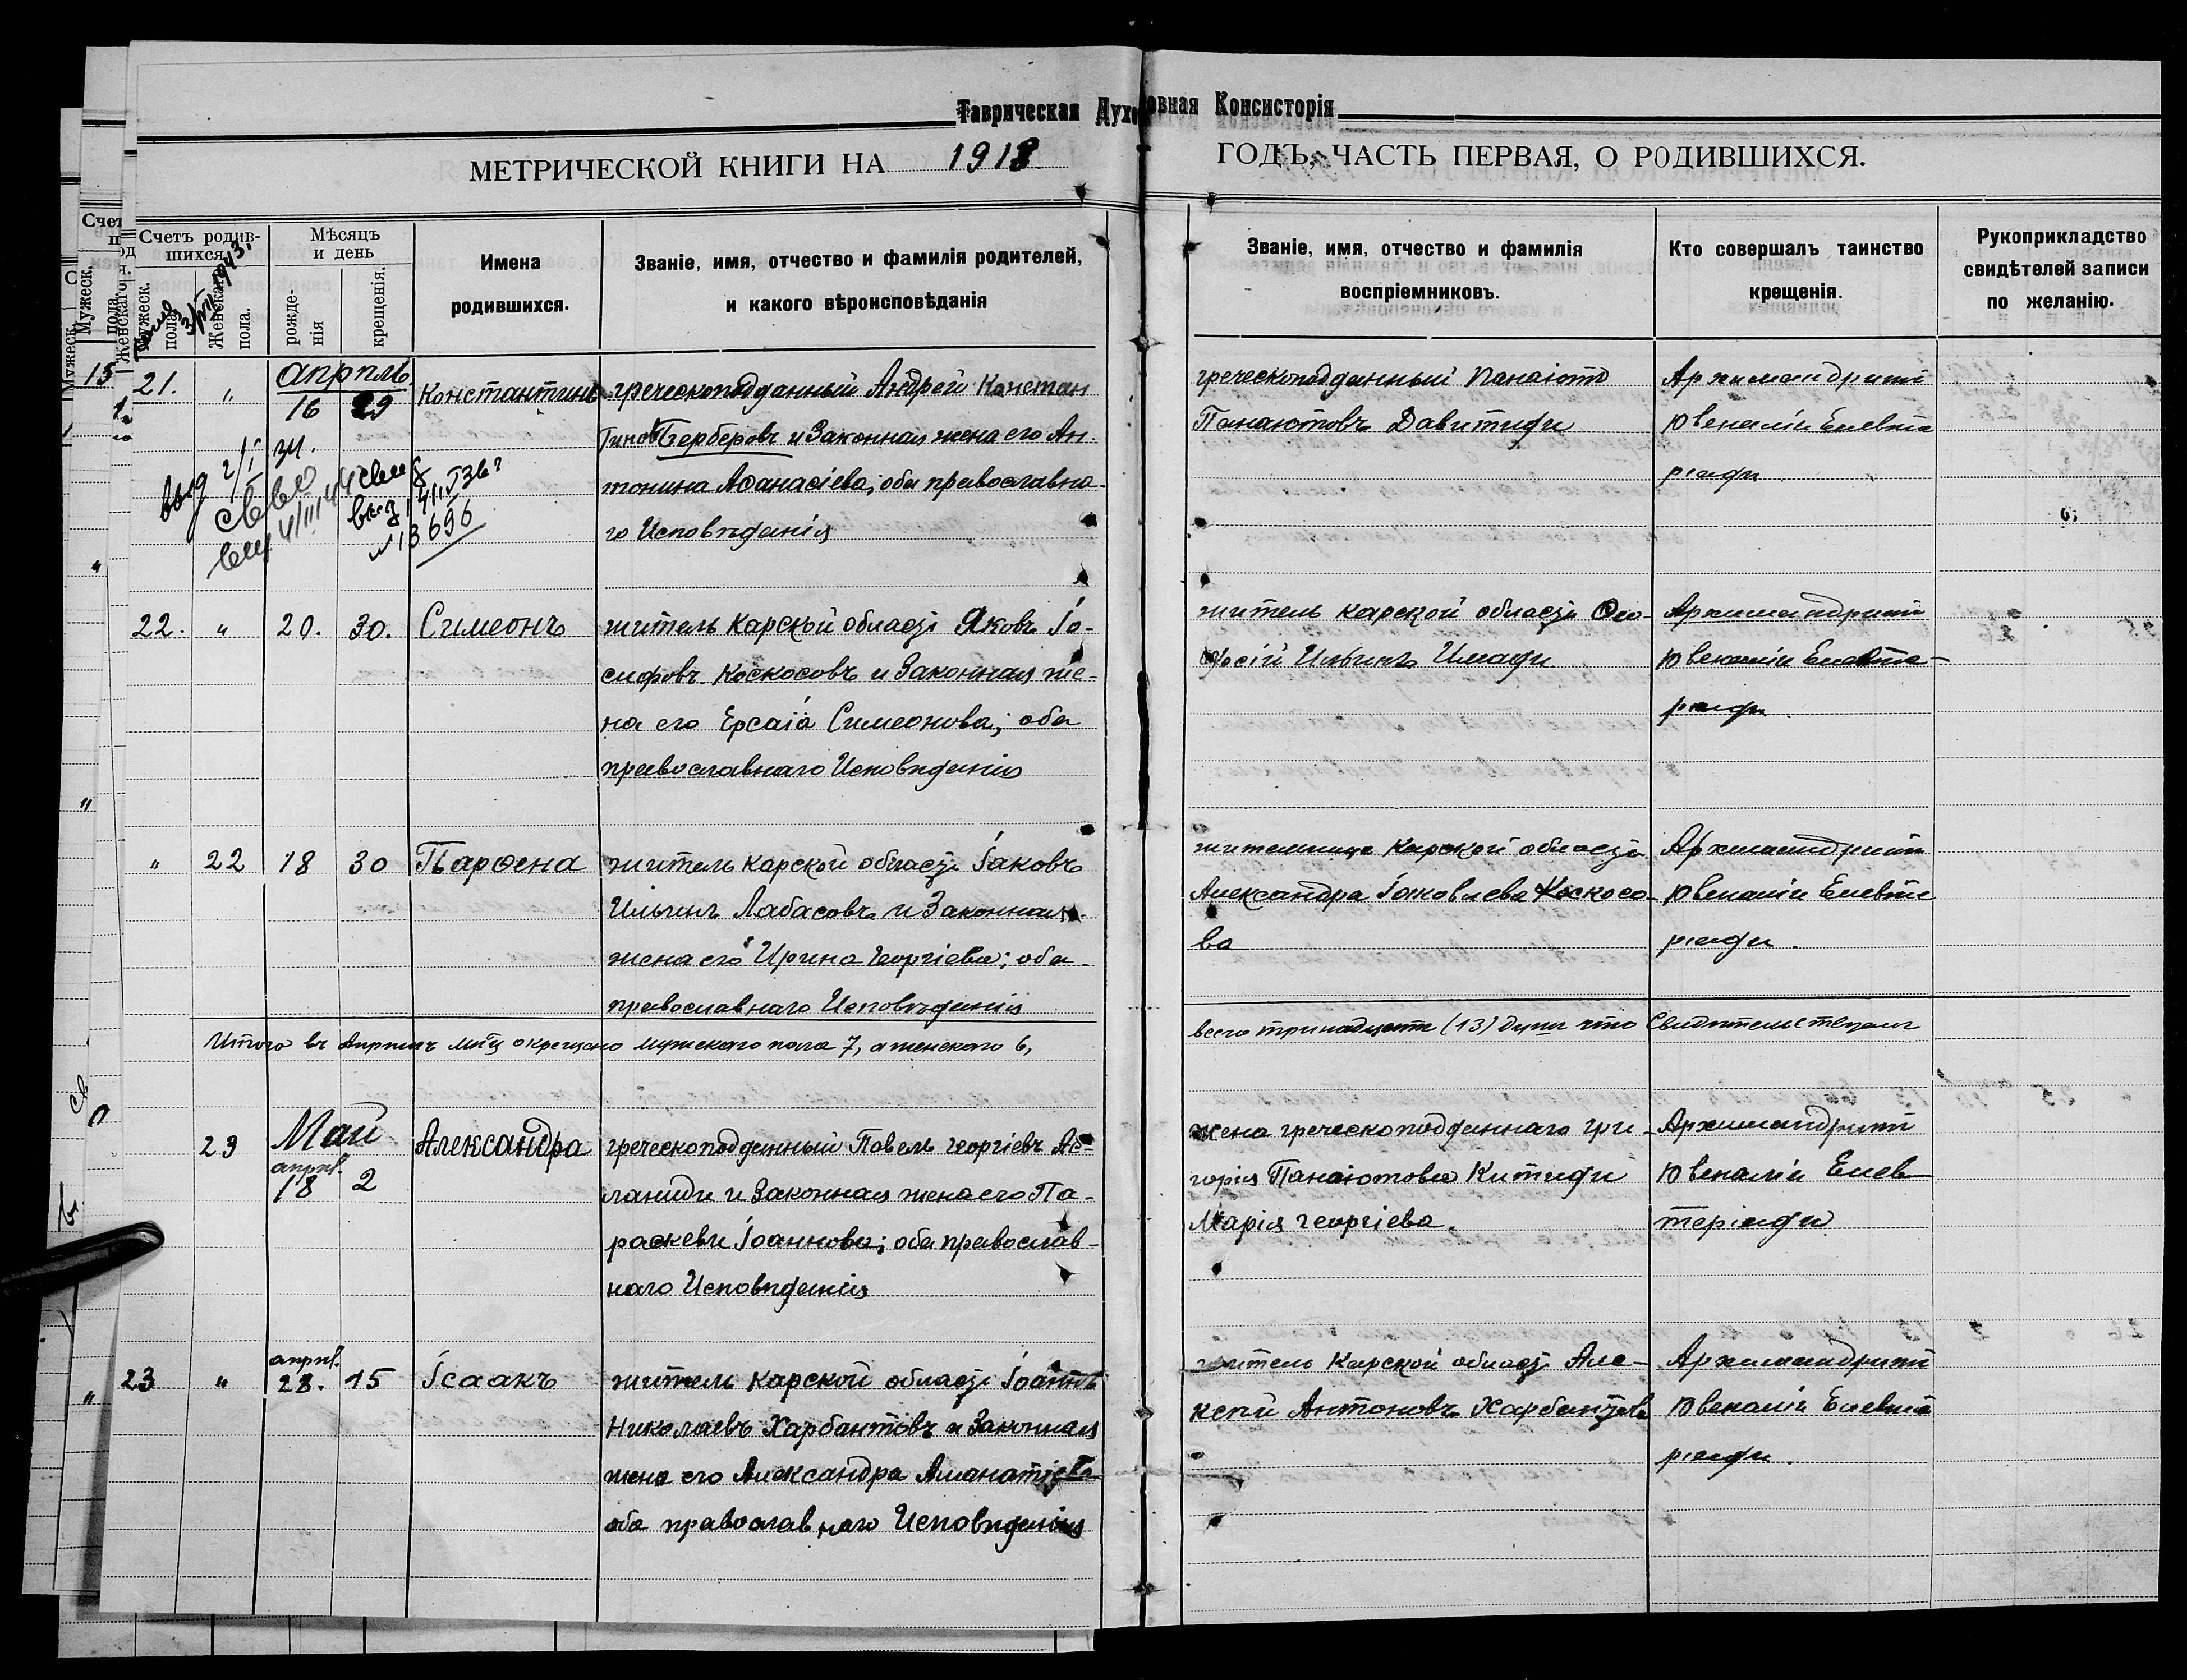 Таврическая Духовная Консисторія
МЕТРИЧЕСКОЙ КНИГИ НА 1918 ГОДЪ, ЧАСТЬ ПЕРВАЯ, О РОДИВШИХСЯ.
Счетъ родив-
шихся.
Мужеск.
пола.
Женскаго
пола.
Мѣсяцъ
и день
рожде-
нія
крещенія.
Имена
родившихся.
Званіе, имя, отчество и фамилія родителей,
и какого вѣроисповѣданія
Званіе, имя, отчество и фамилія
воспріемниковъ.
Кто совершалъ таинство
крещенія.
Рукоприкладство
свидѣтелей записи
по желанію.
21. " апрѣль
16 29
Константинъ
греческоподданный Андрей Констан
тиновъ Берберовъ и Законная жена его Ан-
тонина Аѳанасіева; оба православна-
го Исповѣданія
греческоподданный Панаіотъ
Панаіотовъ Давитифи
Архимандритъ
Ювеналій Елевте
ріади
выд 2/I 34.
№ 13696
22. " 20. 30. Симеонъ
житель Карской области Яковъ Іо-
сифовъ Коскосовъ и Законная же-
на его Ерсаіа Симеонова; оба
православнаго Исповѣданія
житель карской области Ѳео-
Ильинъ
Архимандритъ
Ювеналій Елевте-
ріади
" 22 18 30 Парѳена
житель карской области Іаковъ
Ильинъ Лабасовъ и Законная
жена его Ирина Георгіева; оба
православнаго Исповѣданія
жительница Карской области
Александра Іаковлева Коскосо-
ва
Архимандритъ
Ювеналій Елевте
ріади.
Итого въ Апрѣлѣ мѣц окрещено мужескаго пола 7, а женскаго 6,
всего тринадцать (13) душъ что Свидѣтельствуемъ
23 Май
апрѣ.
18 2
Александра
греческоподданный Павелъ Георгіевъ Ас-
ланиди и Законная жена его Па-
раскеви Іоаннова; оба православ-
наго Исповѣданія
жена греческоподданнаго Гри-
горія Панаіотова Китифи
Марія Георгіева.
Архимандритъ
Ювеналій Елев-
теріади
23 " апрѣ.
28. 15 Ісаакъ
житель Карской области Іоаннъ
Николаевъ Харбантовъ и Законная
жена его Александра Аманатіева
оба православнаго Исповѣданія
житель Карской области Але-
ксѣй Антоновъ Харбантовъ
Архимандритъ
Ювеналій Елевте
ріади.
15